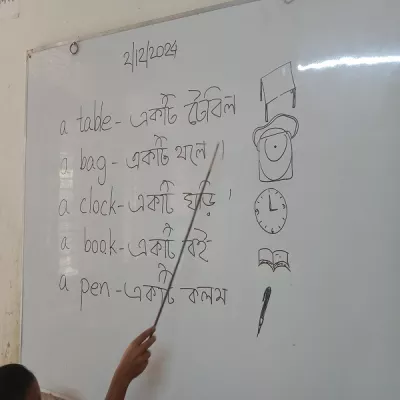 2/12/2024
a table - একটি টেবিল
a bag - একটি থলে।
a clock - একটি ঘড়ি।
a book - একটি বই
a pen - একটি কলম